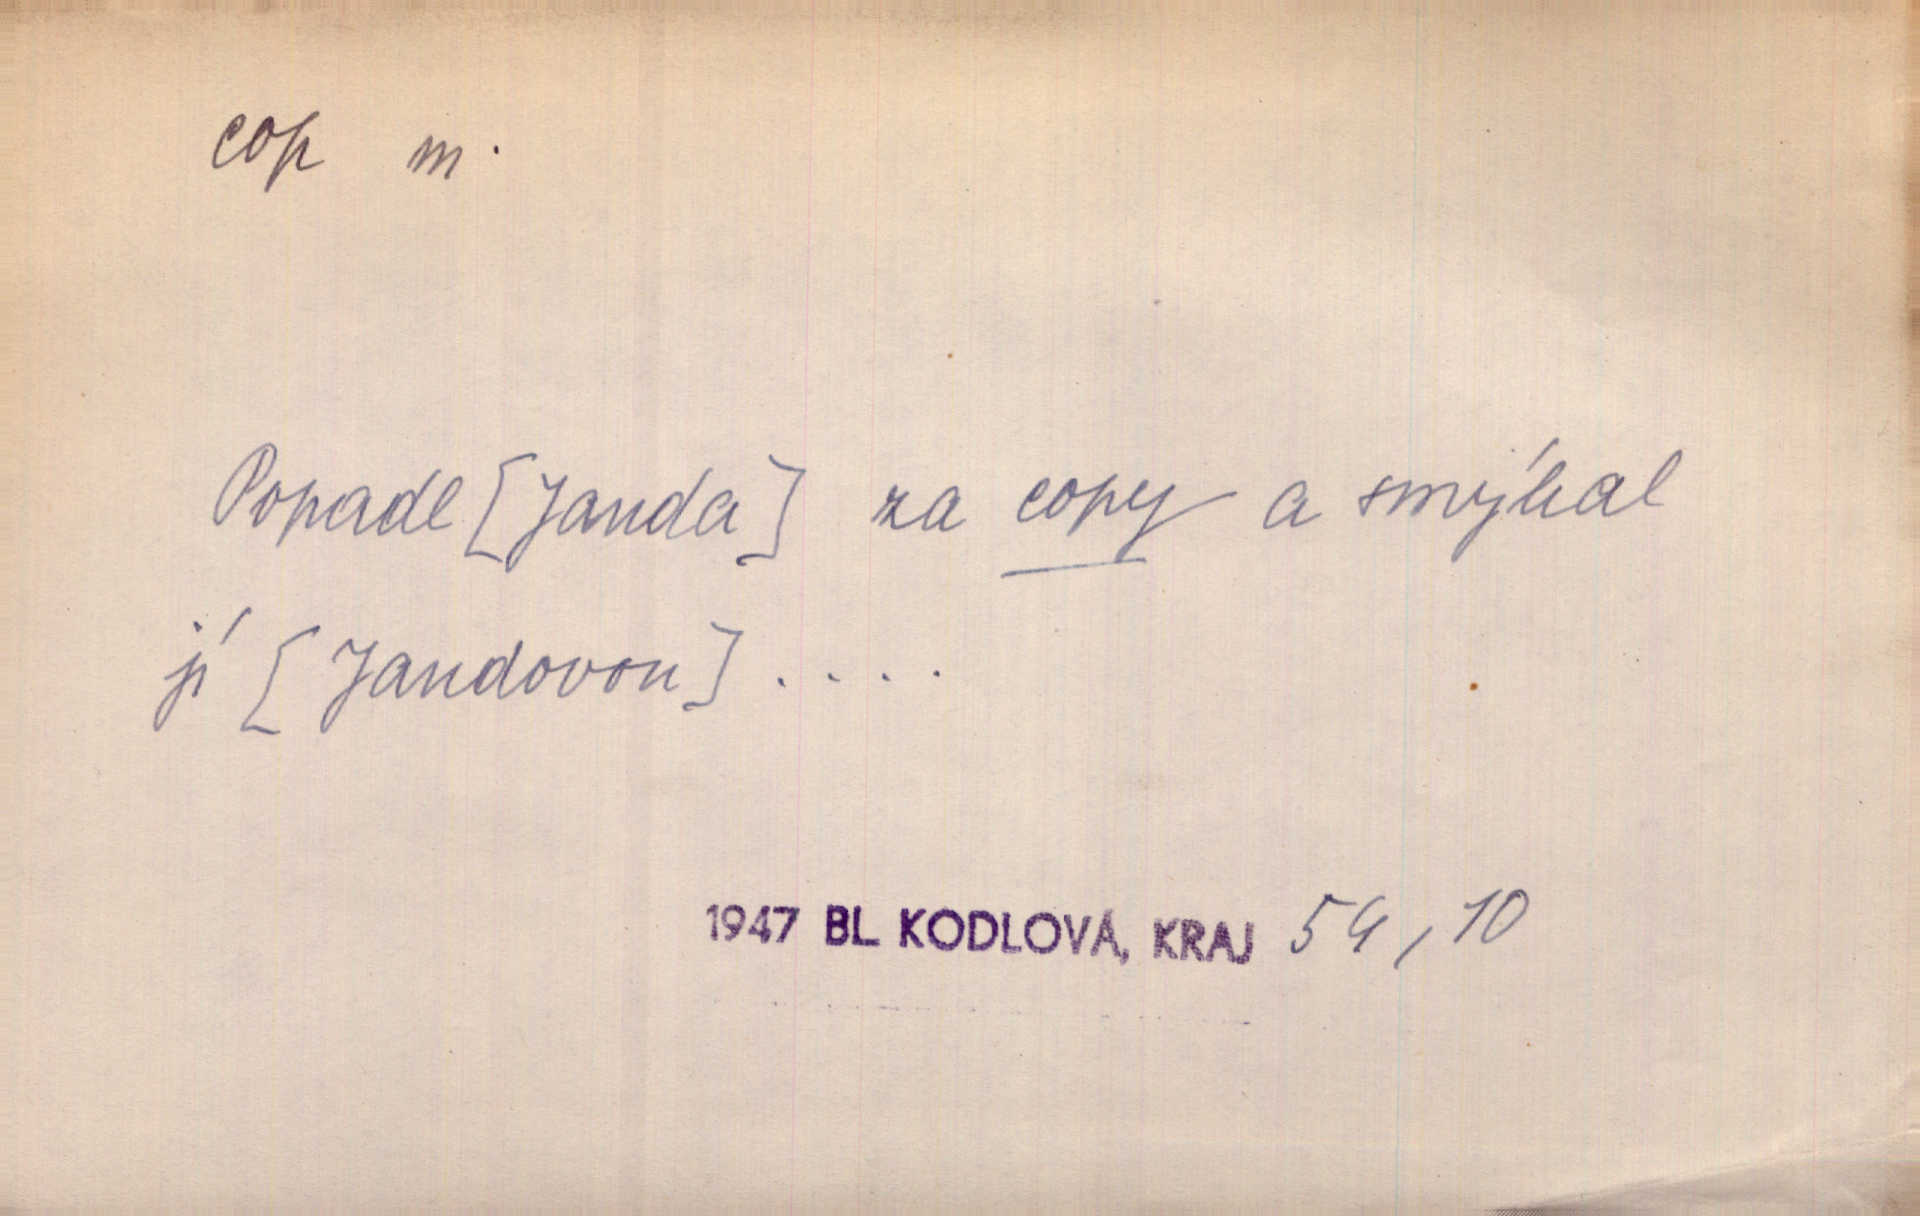 cop m.
Popadl [Janda] za copy a smýkal
jí [Jandovou] ....
1947 BL KODLOVÁ, KRAJ 54, 10